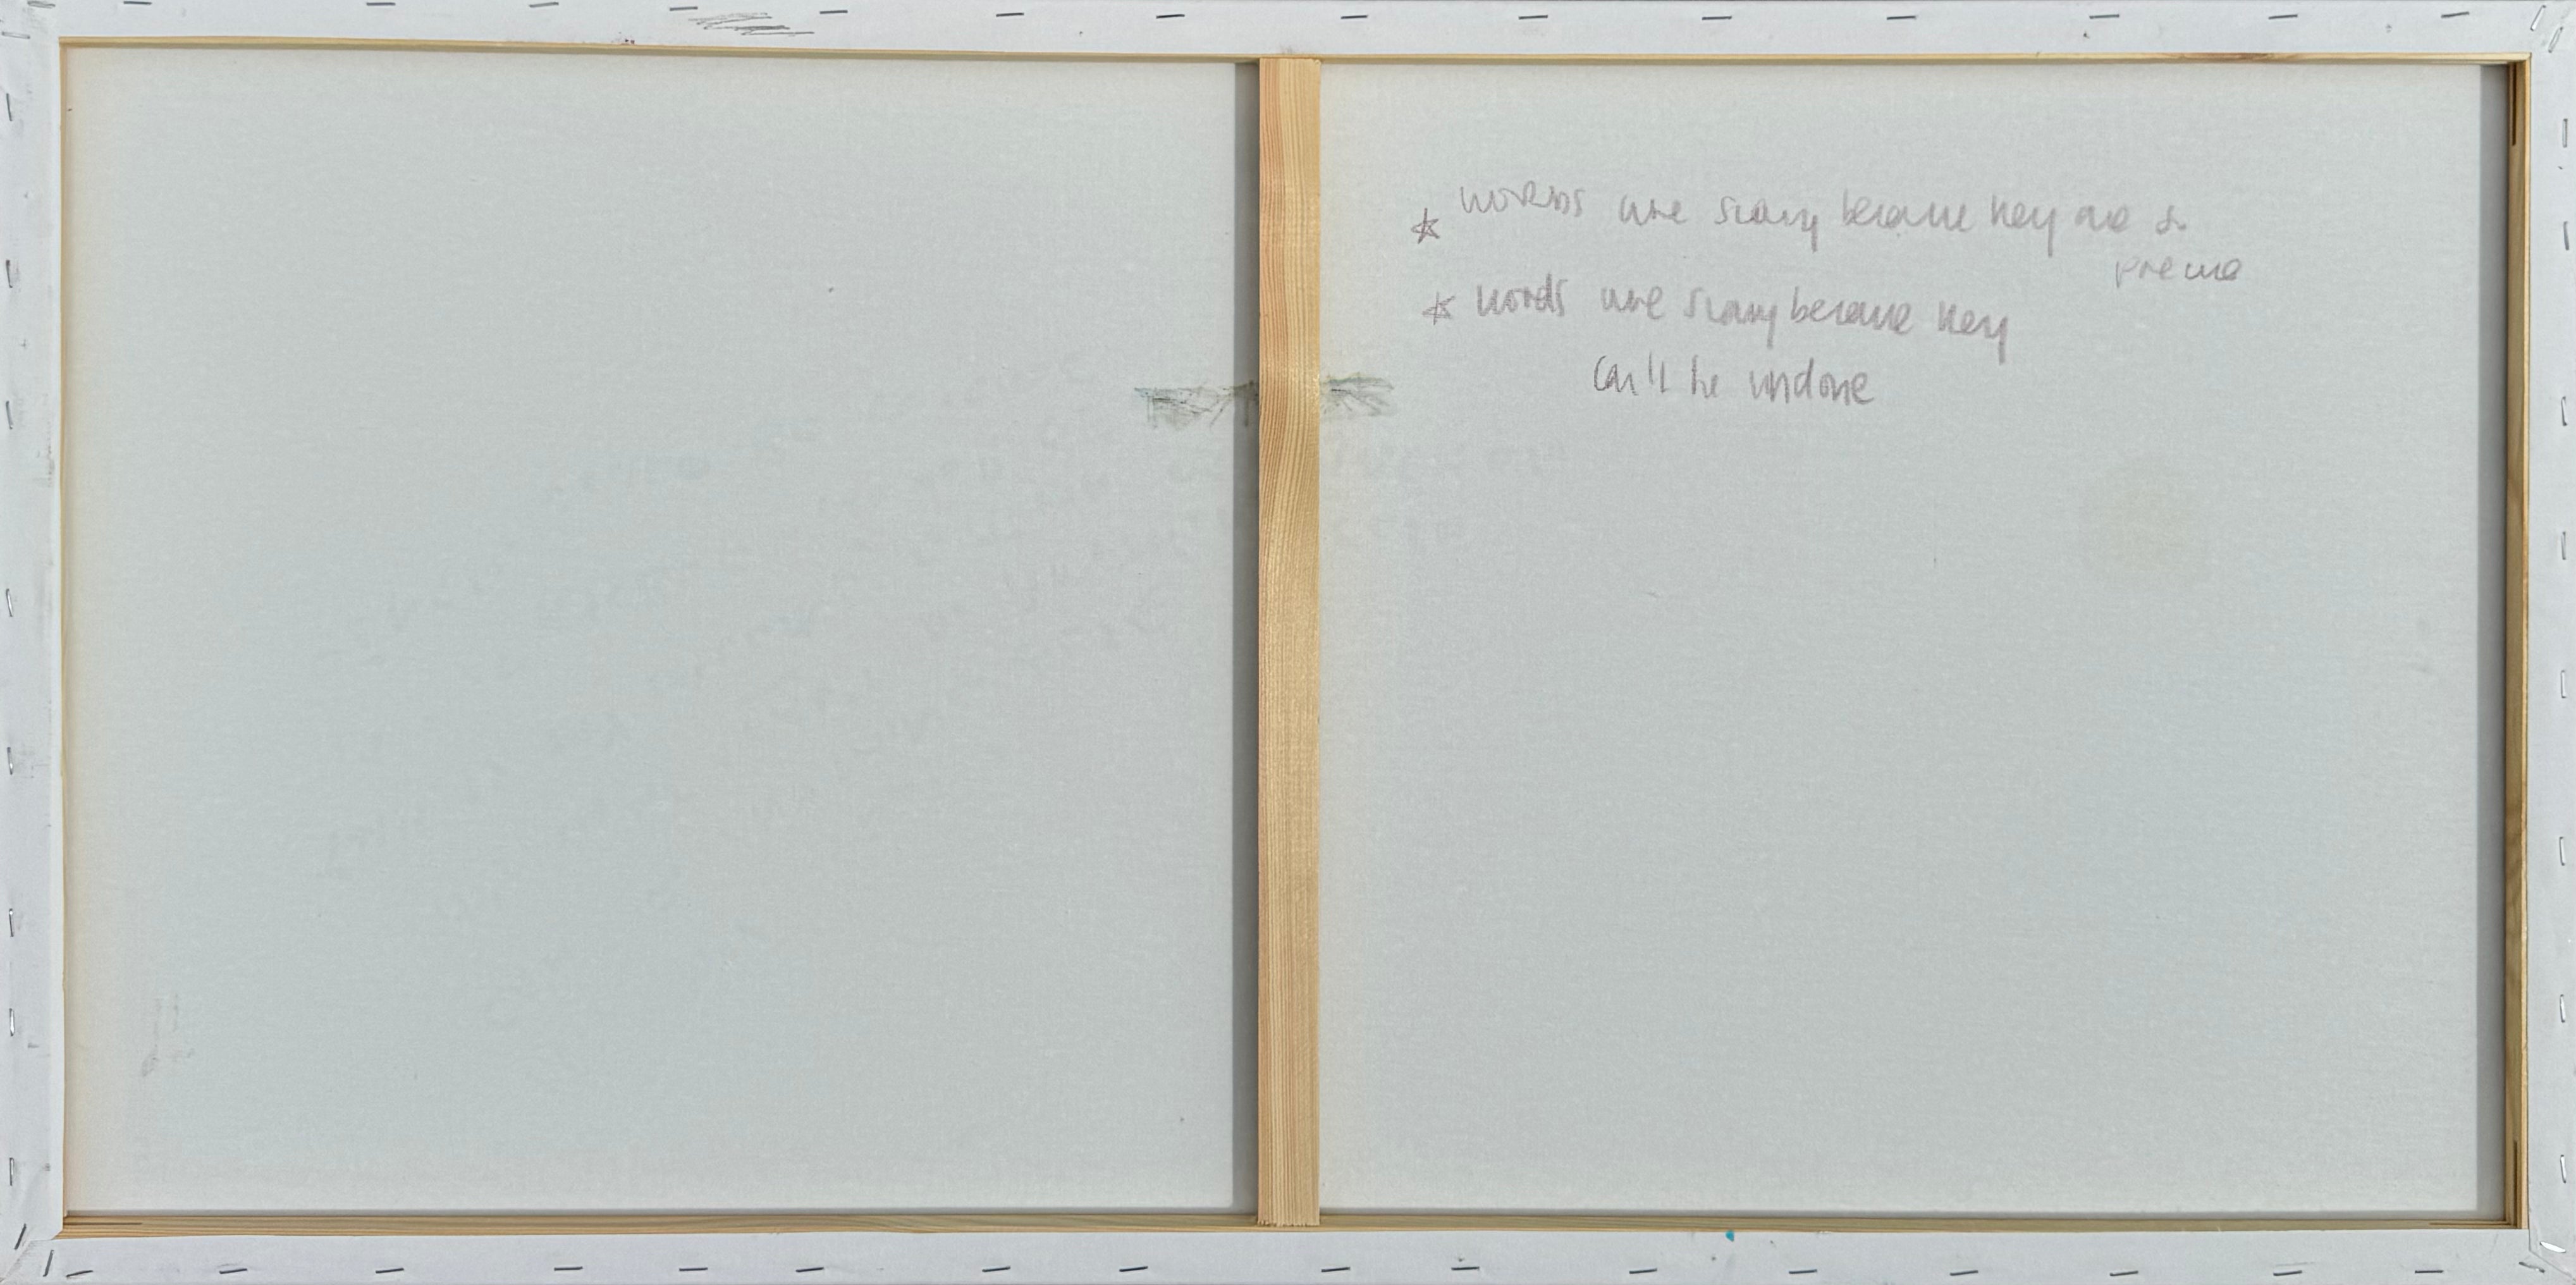 ★ WORDS are scary because they are so
precise
★ words are scary because they
can't be undone